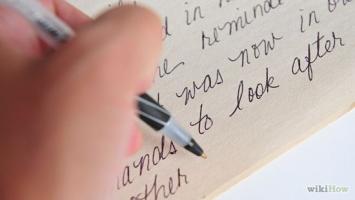 in h
reminde
was now in o
hands to look after
other
wikiHow